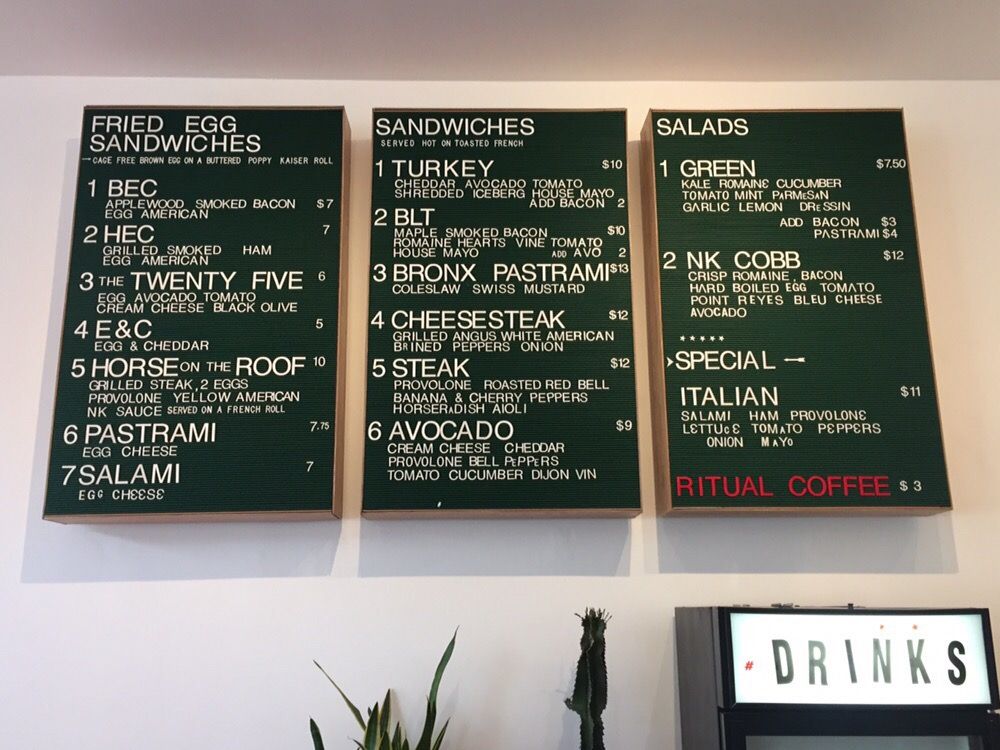 FRIED EGG
SANDWICHES
→CAGE FREE BROWN EGG ON A BUTTERED POPPY KAISER ROLL
1 BEC
APPLEWOOD SMOKED BACON $7
EGG AMERICAN
2 HEC 7
GRILLED SMOKED HAM
EGG AMERICAN
3 THE TWENTY FIVE 6
EGG AVOCADO TOMATO
CREAM CHEESE BLACK OLIVE
4 E&C 5
EGG & CHEDDAR
5 HORSE ON THE ROOF 10
GRILLED STEAK, 2 EGGS
PROVOLONE YELLOW AMERICAN
NK SAUCE SERVED ON A FRENCH ROLL
6 PASTRAMI 7.75
EGG CHEESE
7 SALAMI 7
EGG CHEESE
SANDWICHES
SERVED HOT ON TOASTED FRENCH
1 TURKEY $10
CHEDDAR AVOCADO TOMATO
SHREDDED ICEBERG HOUSE MAYO
ADD BACON 2
2 BLT
MAPLE SMOKED BACON $10
ROMAINE HEARTS VINE TOMATO
HOUSE MAYO ADD AVO 2
3 BRONX PASTRAMI $13
COLESLAW SWISS MUSTARD
4 CHEESESTEAK $12
GRILLED ANGUS WHITE AMERICAN
BRINED PEPPERS ONION
5 STEAK $12
PROVOLONE ROASTED RED BELL
BANANA & CHERRY PEPPERS
HORSERADISH AIOLI
6 AVOCADO $9
CREAM CHEESE CHEDDAR
PROVOLONE BELL PEPPERS
TOMATO CUCUMBER DIJON VIN
SALADS
1 GREEN $7.50
KALE ROMAINE CUCUMBER
TOMATO MINT PARMESAN
GARLIC LEMON DRESSIN
ADD BACON $3
PASTRAMI $4
2 NK COBB $12
CRISP ROMAINE, BACON
HARD BOILED EGG TOMATO
POINT REYES BLEU CHEESE
AVOCADO
★★★★★
SPECIAL
ITALIAN $11
SALAMI HAM PROVOLONE
LETTUCE TOMATO PEPPERS
ONION MAYO
RITUAL COFFEE $3
#DRINKS